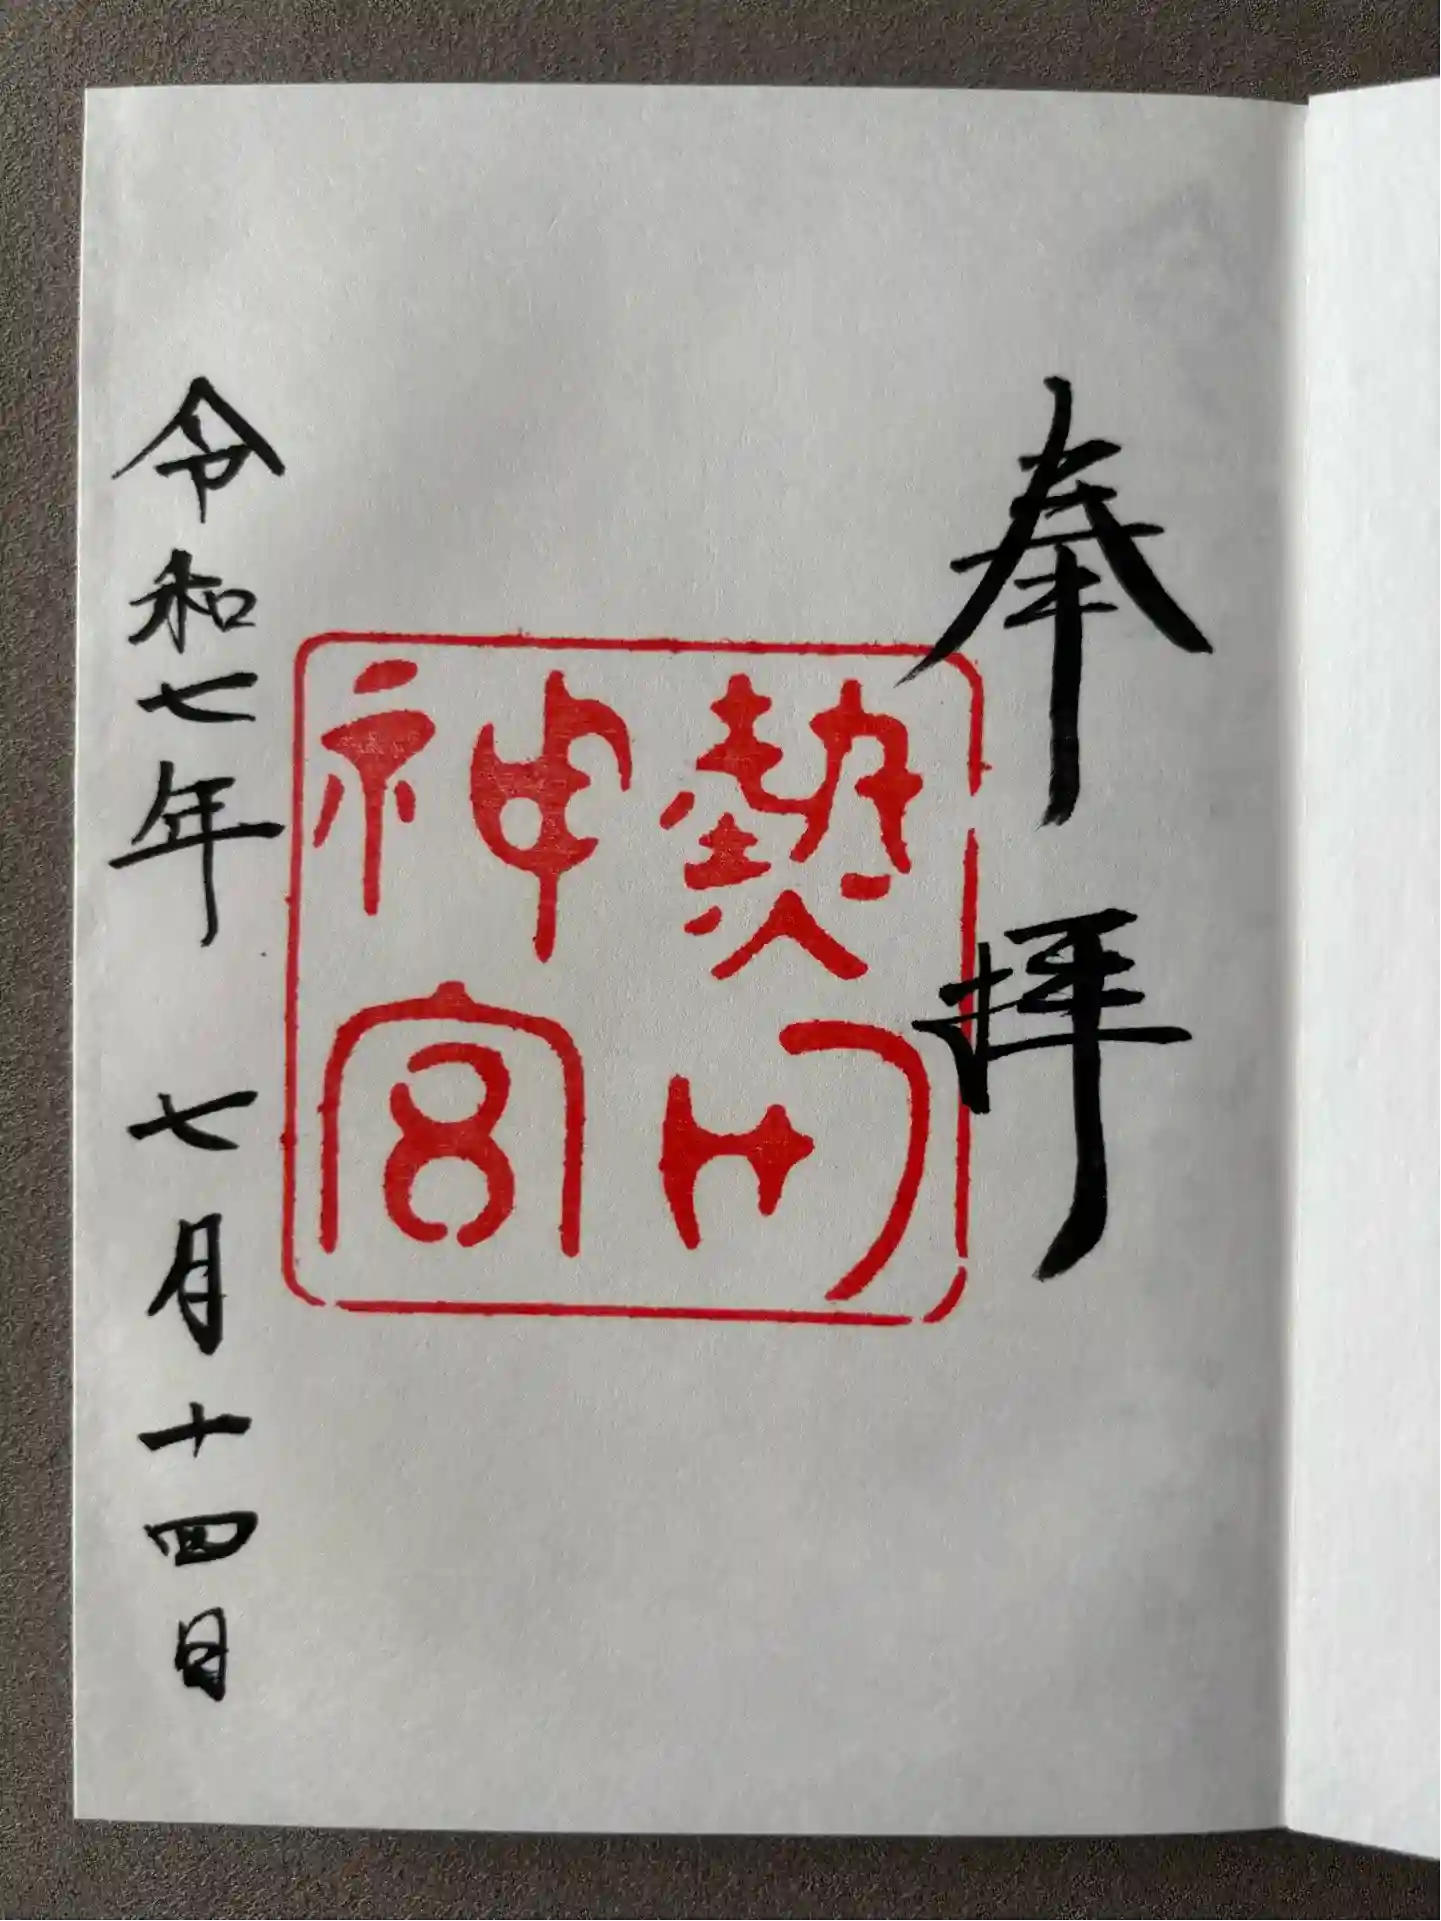 奉拝
熱田神宮
令和七年 七月十四日